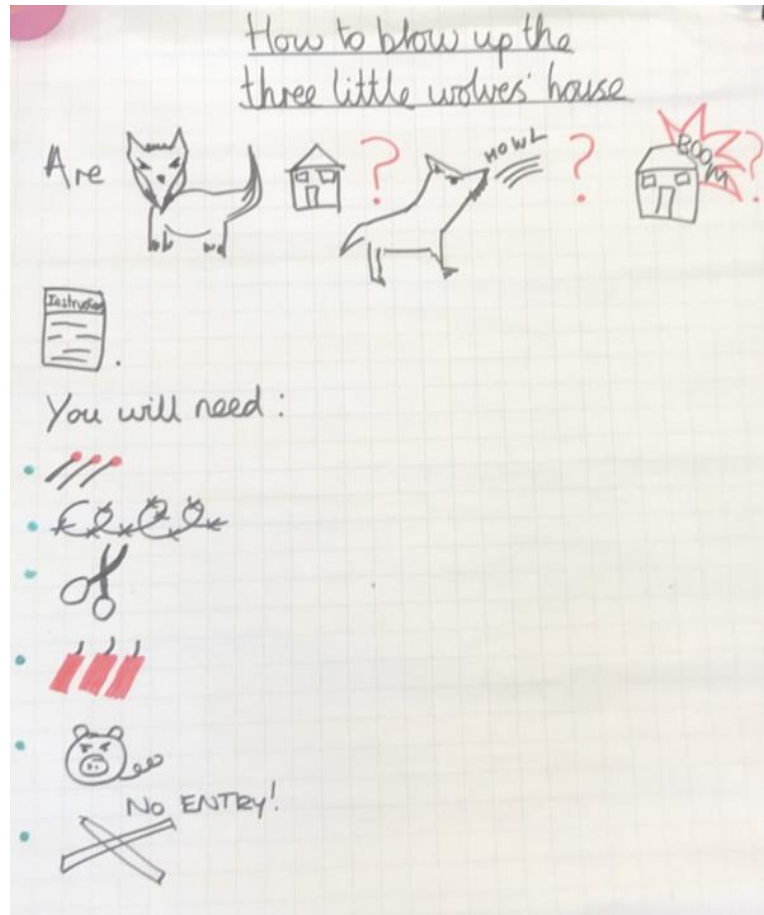 How to blow up the
three little wolves' house
Are
HOWL
BOOM
Instructions
You will need :
No ENTRY!